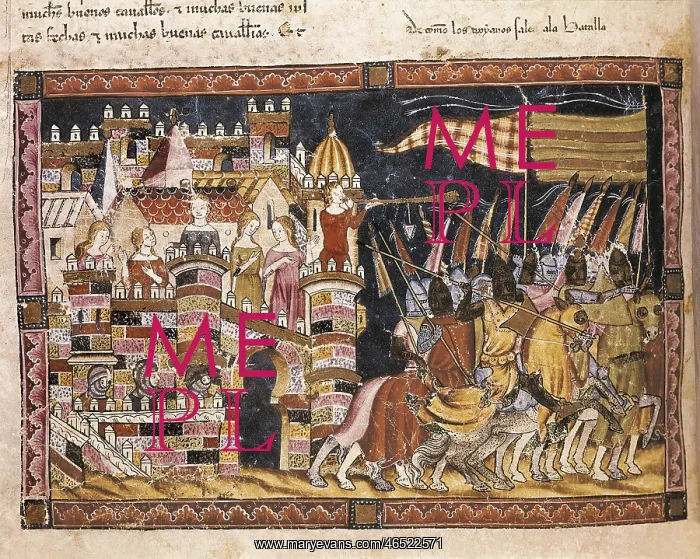 muchos buenos cavallos. & muchas buenas vi
tas fechas & muchas buenas cavallias. Et
De como los troyanos salen ala Batalla
ME
PL
ME
PL
www.maryevans.com/46522571